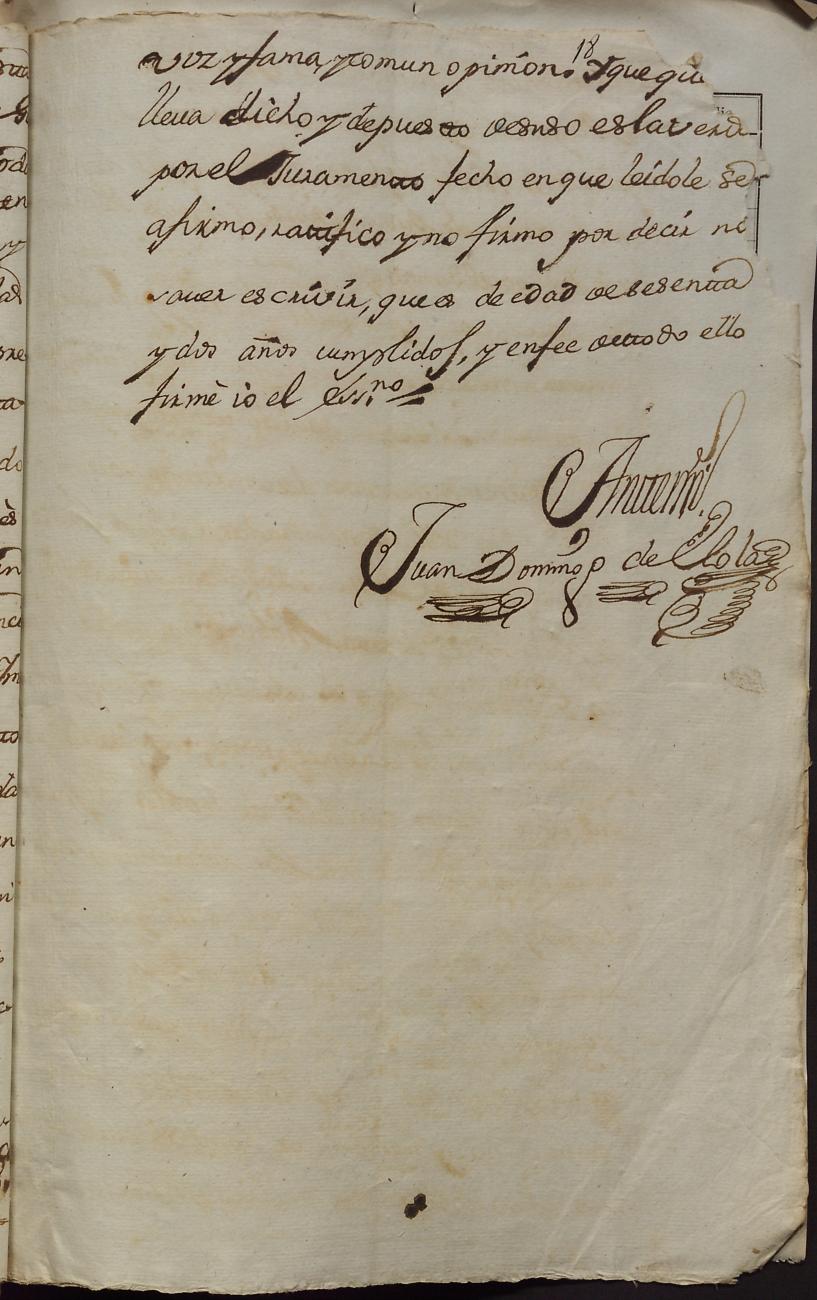 18
voz y fama, y comun opinion. Y que qũ
lleua dicho y depuesto de suso es la verd
por el Juramento fecho en que leidole se
afirmo, ratifico y no firmo por decir no
sauer escriuir, que es de edad de sesenta
y dos años cumplidos, y enfee de todo ello
firmè io el Ess.no
Antemi
Juan Domingo de Olola